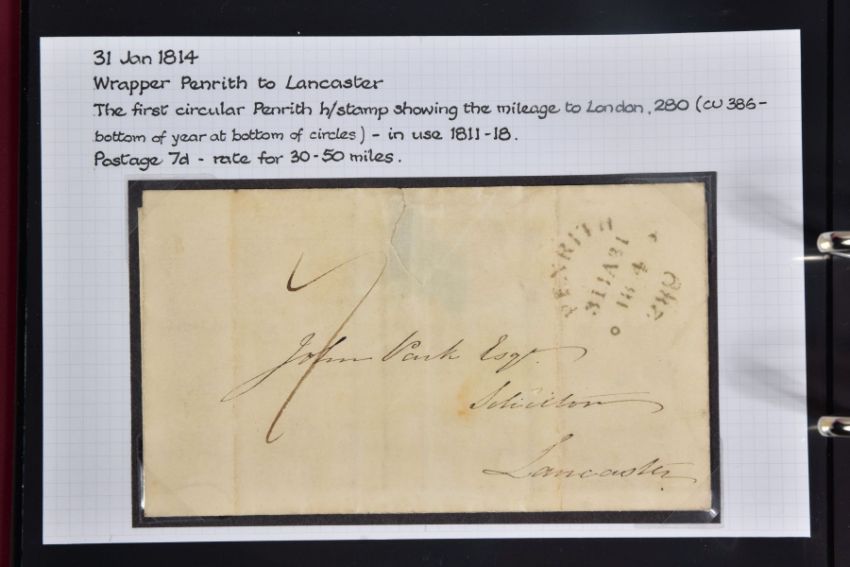 31 Jan 1814
Wrapper Penrith to Lancaster
The first circular Penrith h/stamp showing the mileage to London, 280 (CU 386-
bottom of year at bottom of circles) - in use 1811-18.
Postage 7d - rate for 30-50 miles.
PENRITH
31JA31
18 4
280
7
John Park Esqr.
Solicitor
Lancaster